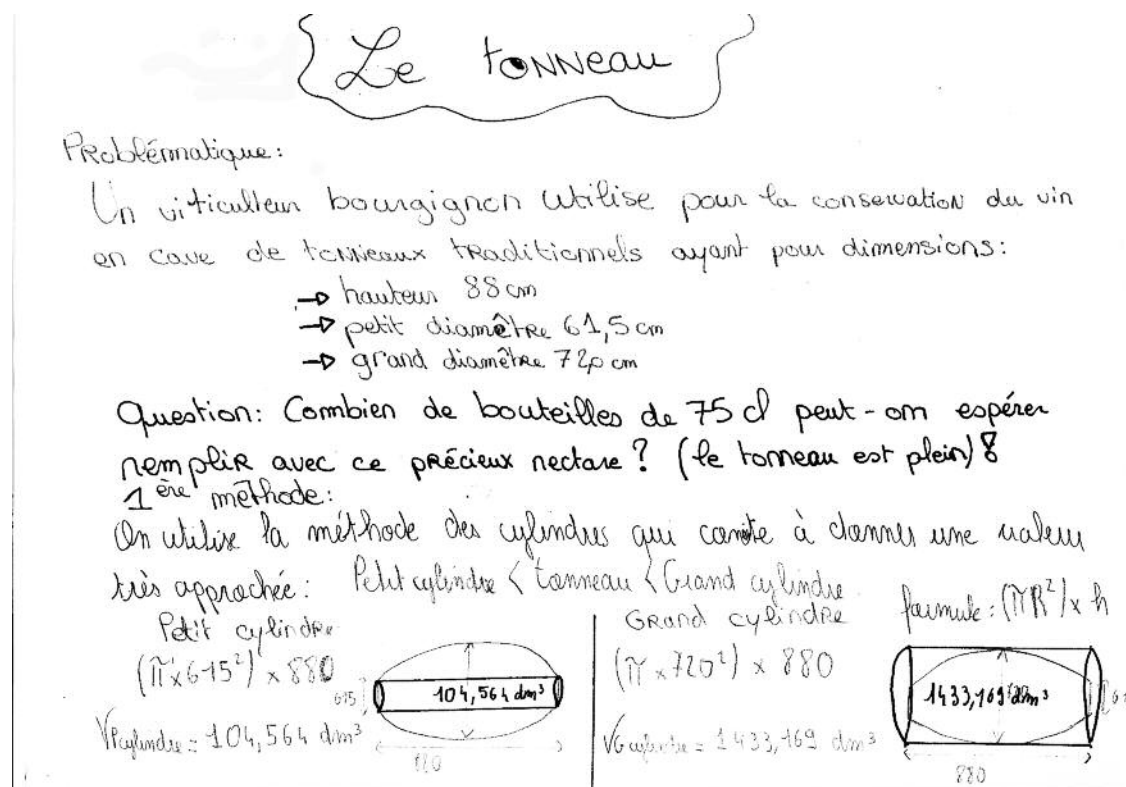 Le tonneau
Problémmatique:
Un viticulteur bourgignon utilise pour la conservation du vin
en cave de tonneaux traditionnels ayant pour dimensions:
→ hauteur 88 cm
→ petit diamêtre 61,5 cm
→ grand diamêtre 72,0 cm
Question: Combien de bouteilles de 75 cl peut-on espérer
remplir avec ce précieux nectare? (le tonneau est plein)
1ère méthode:
On utilise la méthode des cylindres qui à donner une valeur
très approchée: Petit cylindre < tonneau < Grand cylindre
formule: (πR²) x h
Petit cylindre
(π x 615²) x 880
615
104,564 dm³
VPcylindre = 104,564 dm³
880
GRand cylindre
(π x 720²) x 880
1433,169 dm³
VG cylindre = 1433,169 dm³
880